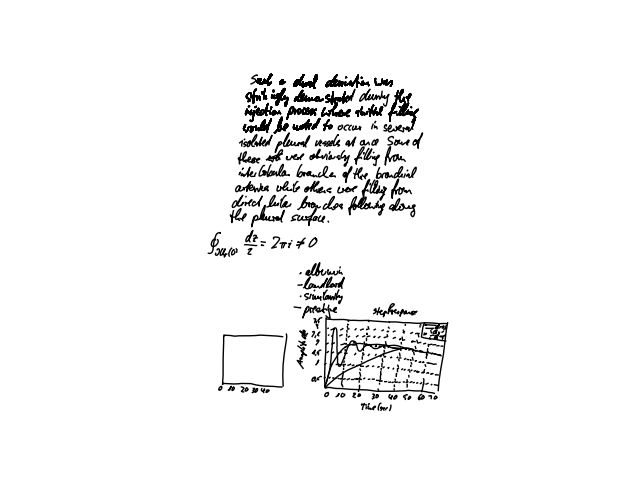 Such a dual derivation was
strikingly demonstrated during the
injection process where initial filling
would be noted to occur in several
isolated pleural vessels at once Some of
these were obviously filling from
interlobular branches of the bronchial
arteries while others were filling from
direct hilar branches following along
the pleural surface.
dz/z = 2πi ≠ 0
· albumin
- landlord
· similarity
- practice
Step Response
Amplitude
0 10 20 30 40
0 10 20 30 40 50 60 70
Time (sec)